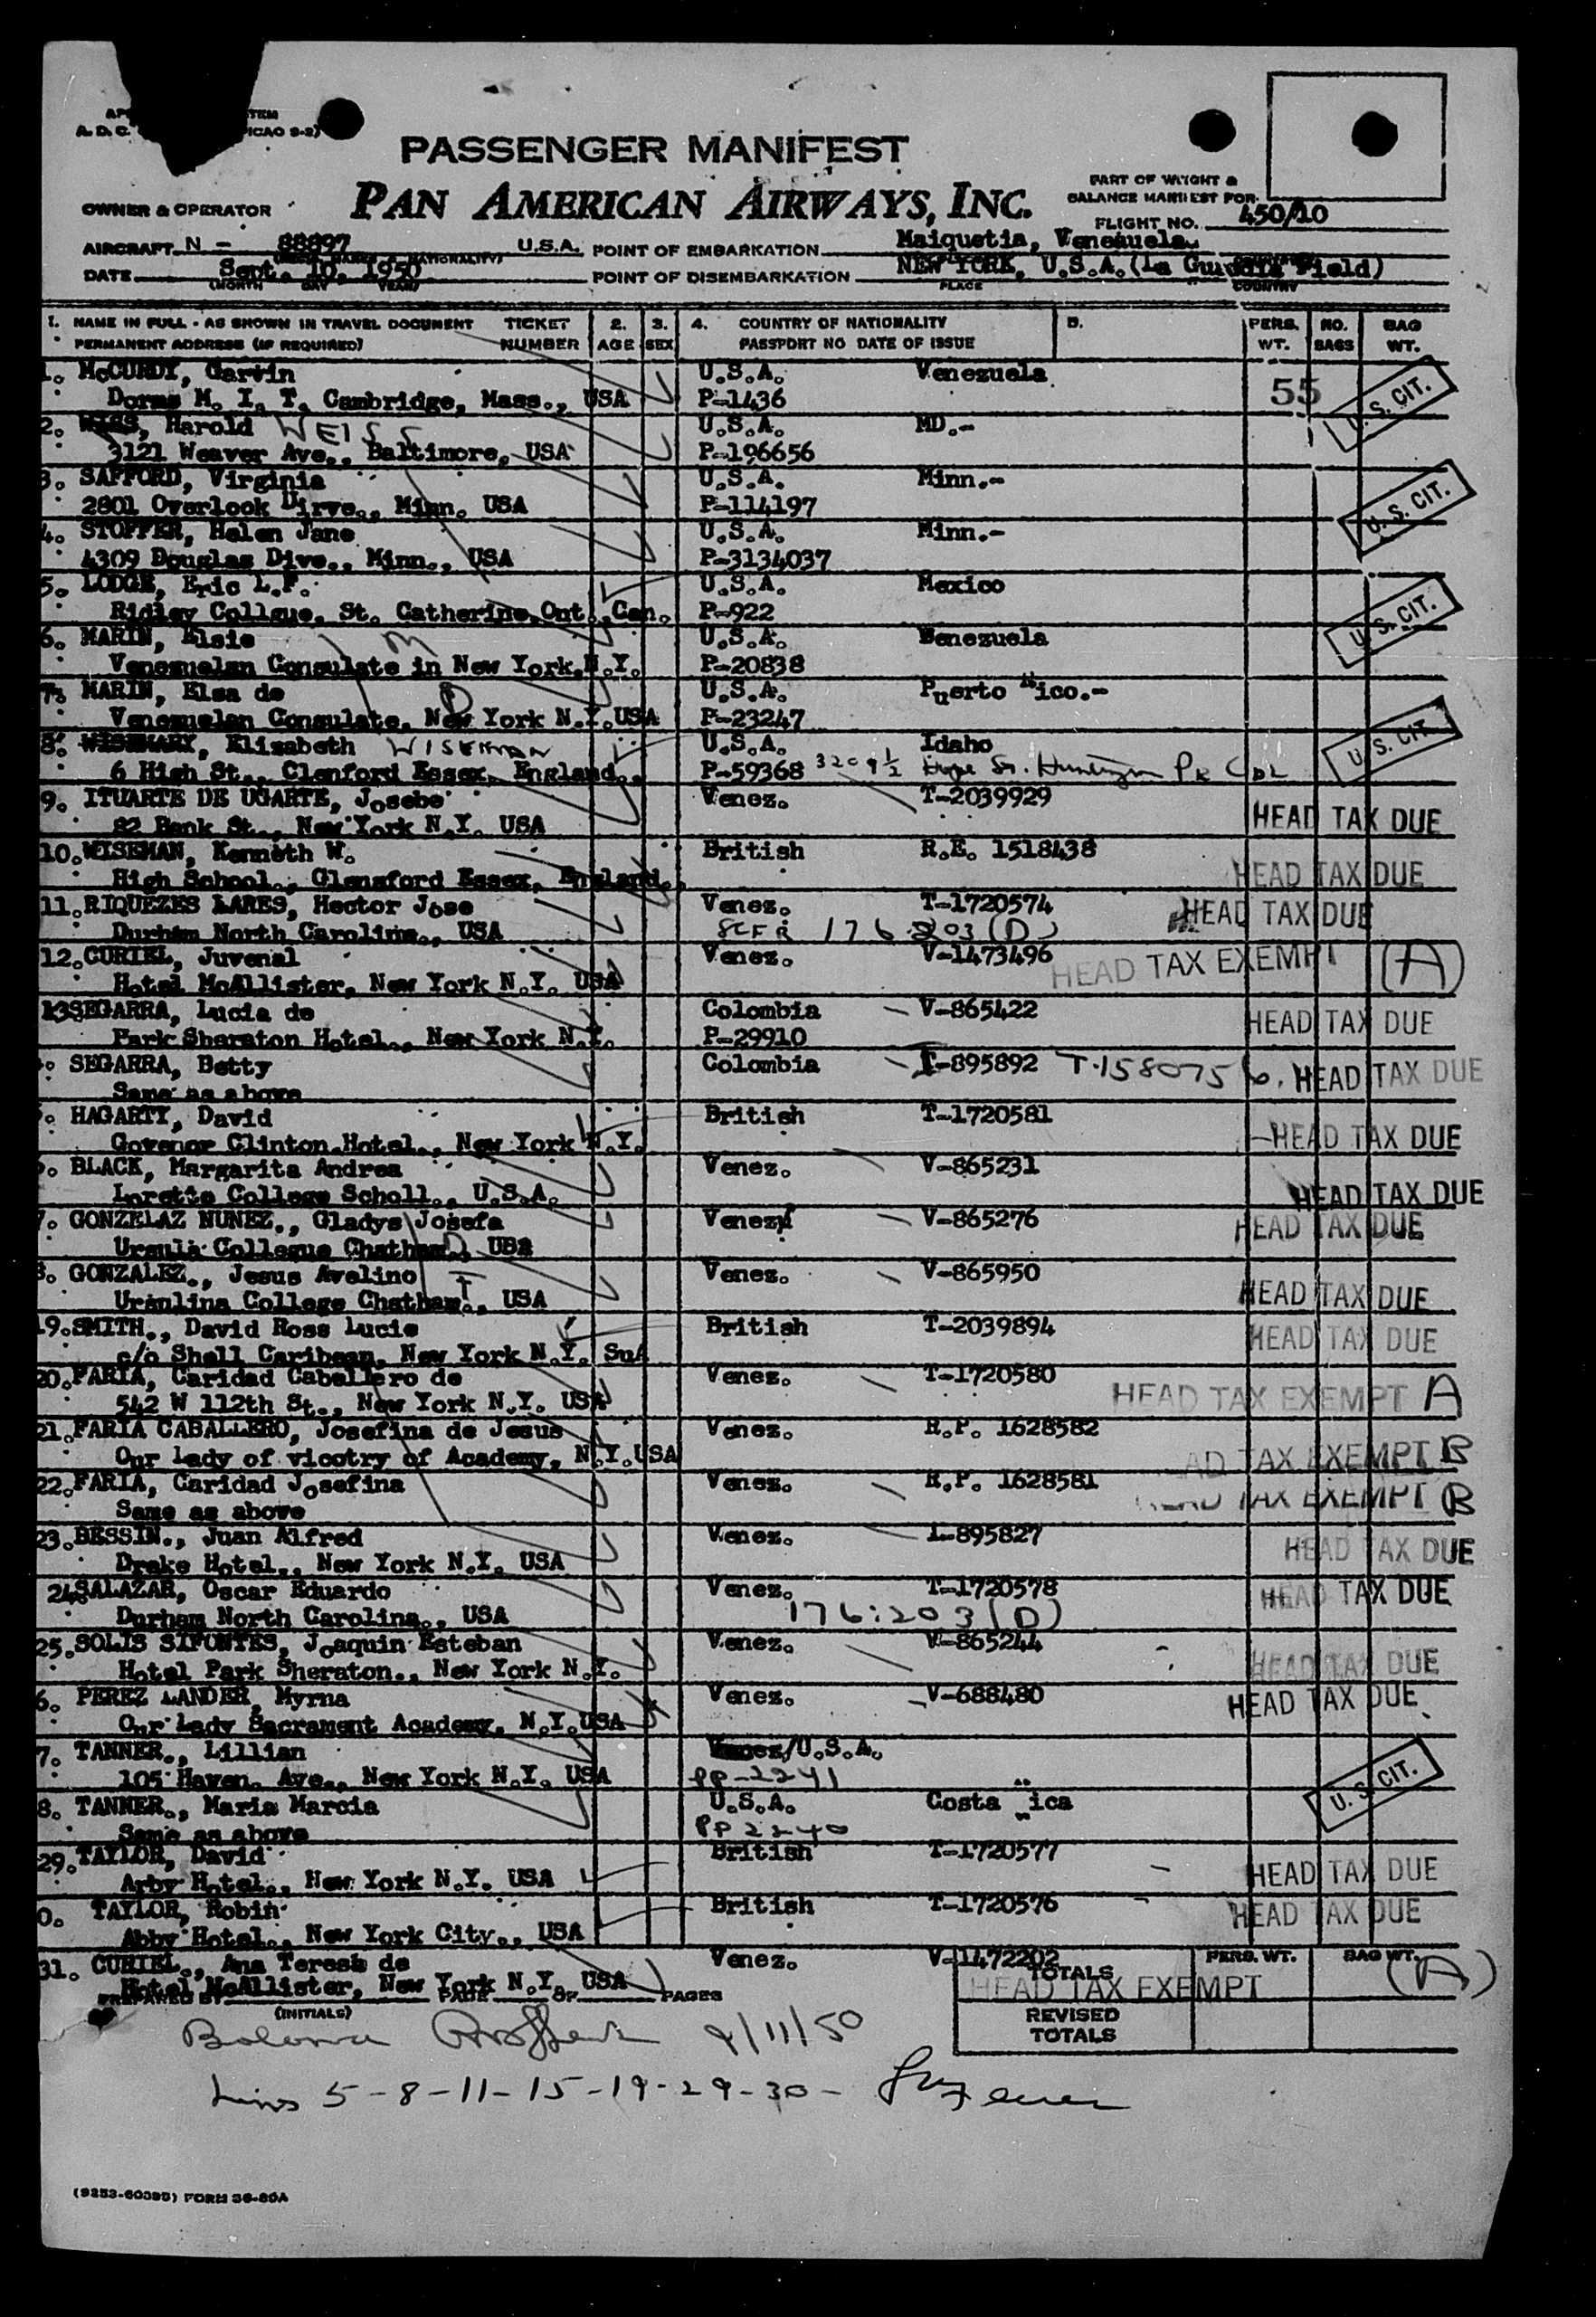 A. D. C.
ICAO 9-2)
PASSENGER MANIFEST
PAN AMERICAN AIRWAYS, INC.
OWNER & OPERATOR
PART OF WEIGHT &
BALANCE MANIFEST FOR
FLIGHT NO. 450/10
AIRCRAFT N - 88897 U.S.A. POINT OF EMBARKATION Maiquetia, Venezuela.
DATE Sept. 10, 1950 POINT OF DISEMBARKATION NEW YORK, U.S.A. (La Guardia Field)
(MONTH DAY YEAR) PLACE COUNTRY
1. NAME IN FULL - AS SHOWN IN TRAVEL DOCUMENT TICKET 2. 3. 4. COUNTRY OF NATIONALITY 5. PERS. NO. BAG
PERMANENT ADDRESS (IF REQUIRED) NUMBER AGE SEX PASSPORT NO DATE OF ISSUE WT. BAGS WT.
1. McCURDY, Garvin U.S.A. Venezuela 55 U.S. CIT.
Dorms M. I. T. Cambridge, Mass., USA P-1436
2. Harold WEISS U.S.A. MD.-
3121 Weaver Ave., Baltimore, USA P-196656
3. SAFFORD, Virginia U.S.A. Minn.- U.S. CIT.
2801 Overlook Dirve., Minn. USA P-114197
4. STOFFER, Helen Jane U.S.A. Minn.-
4309 Douglas Dive., Minn., USA P-3134037
5. LODGE, Eric L.F. U.S.A. Mexico U.S. CIT.
Ridley Collgue, St. Catherine, Ont., Can. P-922
6. MARIN, Elsie M U.S.A. Benezuela
Venezuelan Consulate in New York, N.Y. P-20838
7. MARIN, Elsa de D U.S.A. Puerto Rico.-
Venezuelan Consulate, New York N.Y. USA P-23247
8. Elizabeth WISEMAN U.S.A. Idaho U.S. CIT.
6 High St., Glenford Essex, England. P-59368 3209 1/2
9. ITUARTE DE UGARTE, Josebe Venez. T-2039929 HEAD TAX DUE
82 Bank St., New York N.Y. USA
10. WISEMAN, Kenneth W. British R.E. 1518438 HEAD TAX DUE
High School., Glensford Essex, England.
11. RIQUEZES LARES, Hector Jose Venez. T-1720574 HEAD TAX DUE
Durham North Carolina., USA 8CFR 176.203(D)
12. CURIEL, Juvenal Venez. V-1473496 HEAD TAX EXEMPT (A)
Hotel McAllister, New York N.Y. USA
13 SEGARRA, Lucia de Colombia V-865422 HEAD TAX DUE
Park Sheraton Hotel., New York N.Y. P-29910
SEGARRA, Betty Colombia T-895892 T-1580756. HEAD TAX DUE
Same as above
HAGARTY, David British T-1720581 HEAD TAX DUE
Govenor Clinton Hotel., New York N.Y.
BLACK, Margarita Andrea Venez. V-865231 HEAD TAX DUE
Loretto College Scholl., U.S.A.
7. GONZELAZ NUNEZ., Gladys Josefa Venez. V-865276 HEAD TAX DUE
Ursula Collegue Chatham D
8. GONZALEZ., Jesus Avelino Venez. V-865950 HEAD TAX DUE
Ursulina College Chatham., USA
19. SMITH., David Ross Lucie British T-2039894 HEAD TAX DUE
c/o Shell Caribean, New York N.Y.
20. FARIA, Caridad Caballero de Venez. T-1720580 HEAD TAX EXEMPT A
542 W 112th St., New York N.Y. USA
21. FARIA CABALLERO, Josefina de Jesus Venez. R.P. 1628582
Our lady of vicotry of Academy, N.Y. USA AD TAX EXEMPT B
22. FARIA, Caridad Josefina Venez. R.P. 1628581 HEAD TAX EXEMPT B
Same as above
23. BESSIN., Juan Alfred Venez. L-895827 HEAD TAX DUE
Drake Hotel., New York N.Y. USA
24. SALAZAR, Oscar Eduardo Venez. T-1720578 HEAD TAX DUE
Durham North Carolina., USA 176:203(D)
25. SOLIS SIFONTES, Joaquin Esteban Venez. V-865244 HEAD TAX DUE
Hotel Park Sheraton., New York N.Y.
6. PEREZ LANDER, Myrna Venez. V-688480 HEAD TAX DUE
Our Lady Sacrament Academy, N.Y. USA
7. TANNER., Lillian Venez/U.S.A.
105 Haven. Ave., New York N.Y. USA PP-2241 U.S. CIT.
8. TANNER., Maria Marcia U.S.A. Costa Rica
Same as above PP 2240
29. TAYLOR, David British T-1720577 HEAD TAX DUE
Arby Hotel., New York N.Y. USA
0. TAYLOR, Robin British T-1720576 HEAD TAX DUE
Abby Hotel., New York City., USA
31. CURIEL., Ana Teresa de Venez. V-1472202 PERS. WT. BAG WT.
Hotel McAllister, New York N.Y. USA TOTALS HEAD TAX EXEMPT (A)
PREPARED BY PAGE OF PAGES
(INITIALS) REVISED
TOTALS
9/11/50
Lines 5-8-11-15-19-29-30-
FORM 36-80A